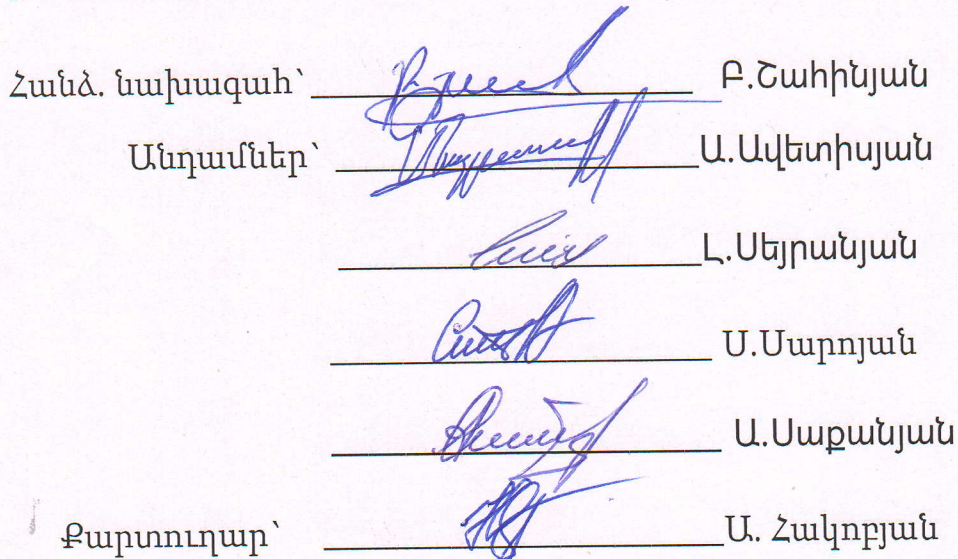 Հանձ. նախագահ՝ Բ.Շահինյան
Անդամներ՝ Ա.Ավետիսյան
Լ.Սեյրանյան
Ս.Սարոյան
Ա.Սաքանյան
Քարտուղար՝ Ա. Հակոբյան